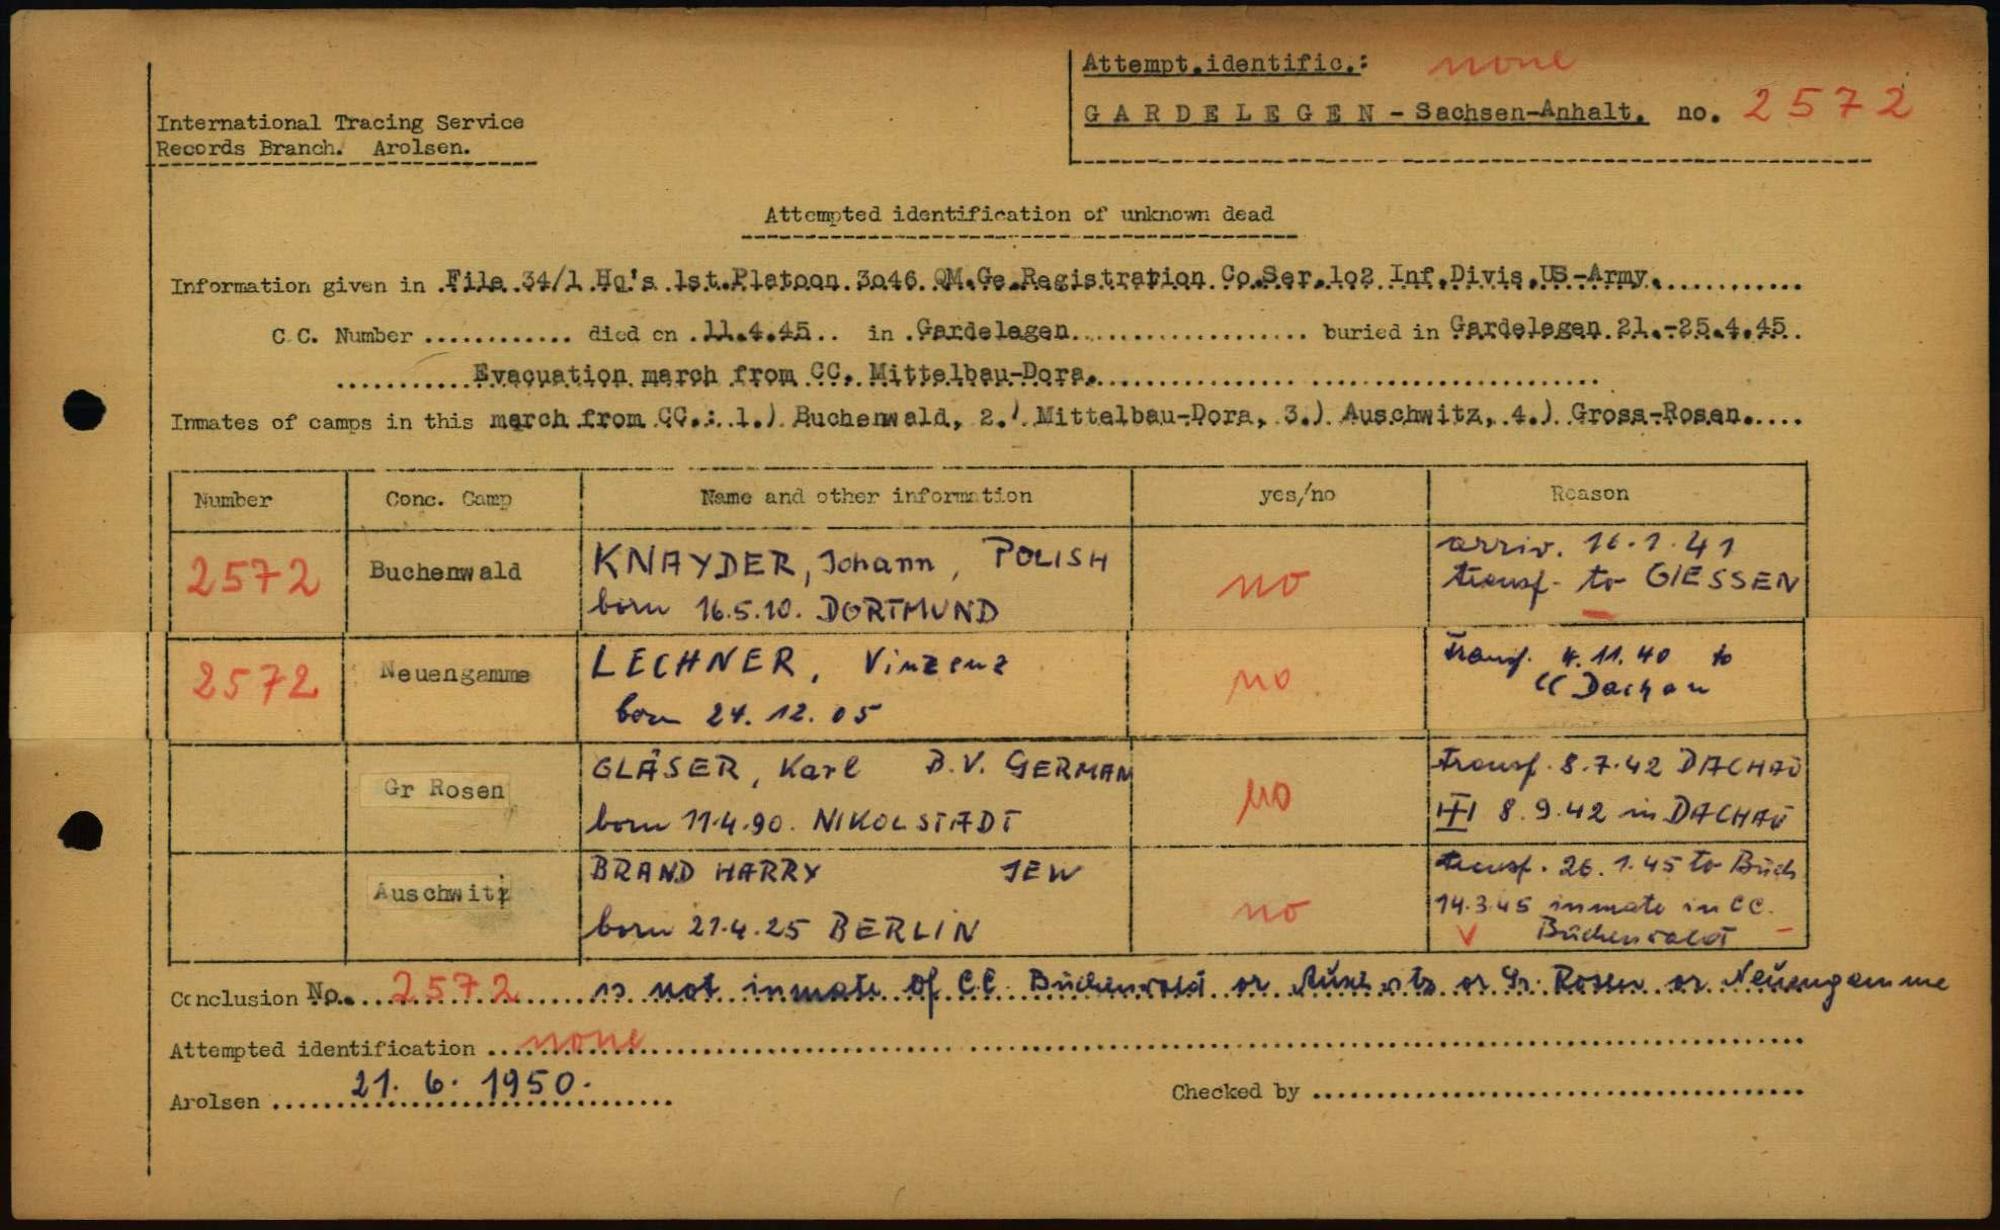 Attempt.identific.: none
GARDELEGEN - Sachsen-Anhalt. no. 2572
International Tracing Service
Records Branch. Arolsen.
Attempted identification of unknown dead
Information given in File 34/1 Hq's 1st.Platoon 3o46 QM.Ge.Registration Co.Ser.1o2 Inf.Divis.US-Army.
C.C. Number ............ died on 11.4.45 in Gardelegen buried in Gardelegen 21.-25.4.45
Evacuation march from CC. Mittelbau-Dora.
Inmates of camps in this march from CC.: 1.) Buchenwald, 2.) Mittelbau-Dora, 3.) Auschwitz, 4.) Gross-Rosen.
Number Conc. Camp Name and other information yes/no Reason
2572 Buchenwald KNAYDER, Johann, POLISH no arriv. 16.1.41
born 16.5.10. DORTMUND transf. to GIESSEN
2572 Neuengamme LECHNER, Vinzenz no transf. 4.11.40 to
born 24.12.05 CC Dachau
Gr Rosen GLÄSER, Karl B.V. GERMAN no transf. 8.7.42 DACHAU
born 11.4.90. NIKOLSTADT 8.9.42 in DACHAU
Auschwitz BRAND HARRY JEW no transf. 26.1.45 to Buch
born 21.4.25 BERLIN 14.3.45 inmate in CC.
Buchenwald
Conclusion No. 2572 is not inmate of CC. Buchenwald or Auschwitz or Gr. Rosen or Neuengamme
Attempted identification none
Arolsen 21. 6. 1950. Checked by